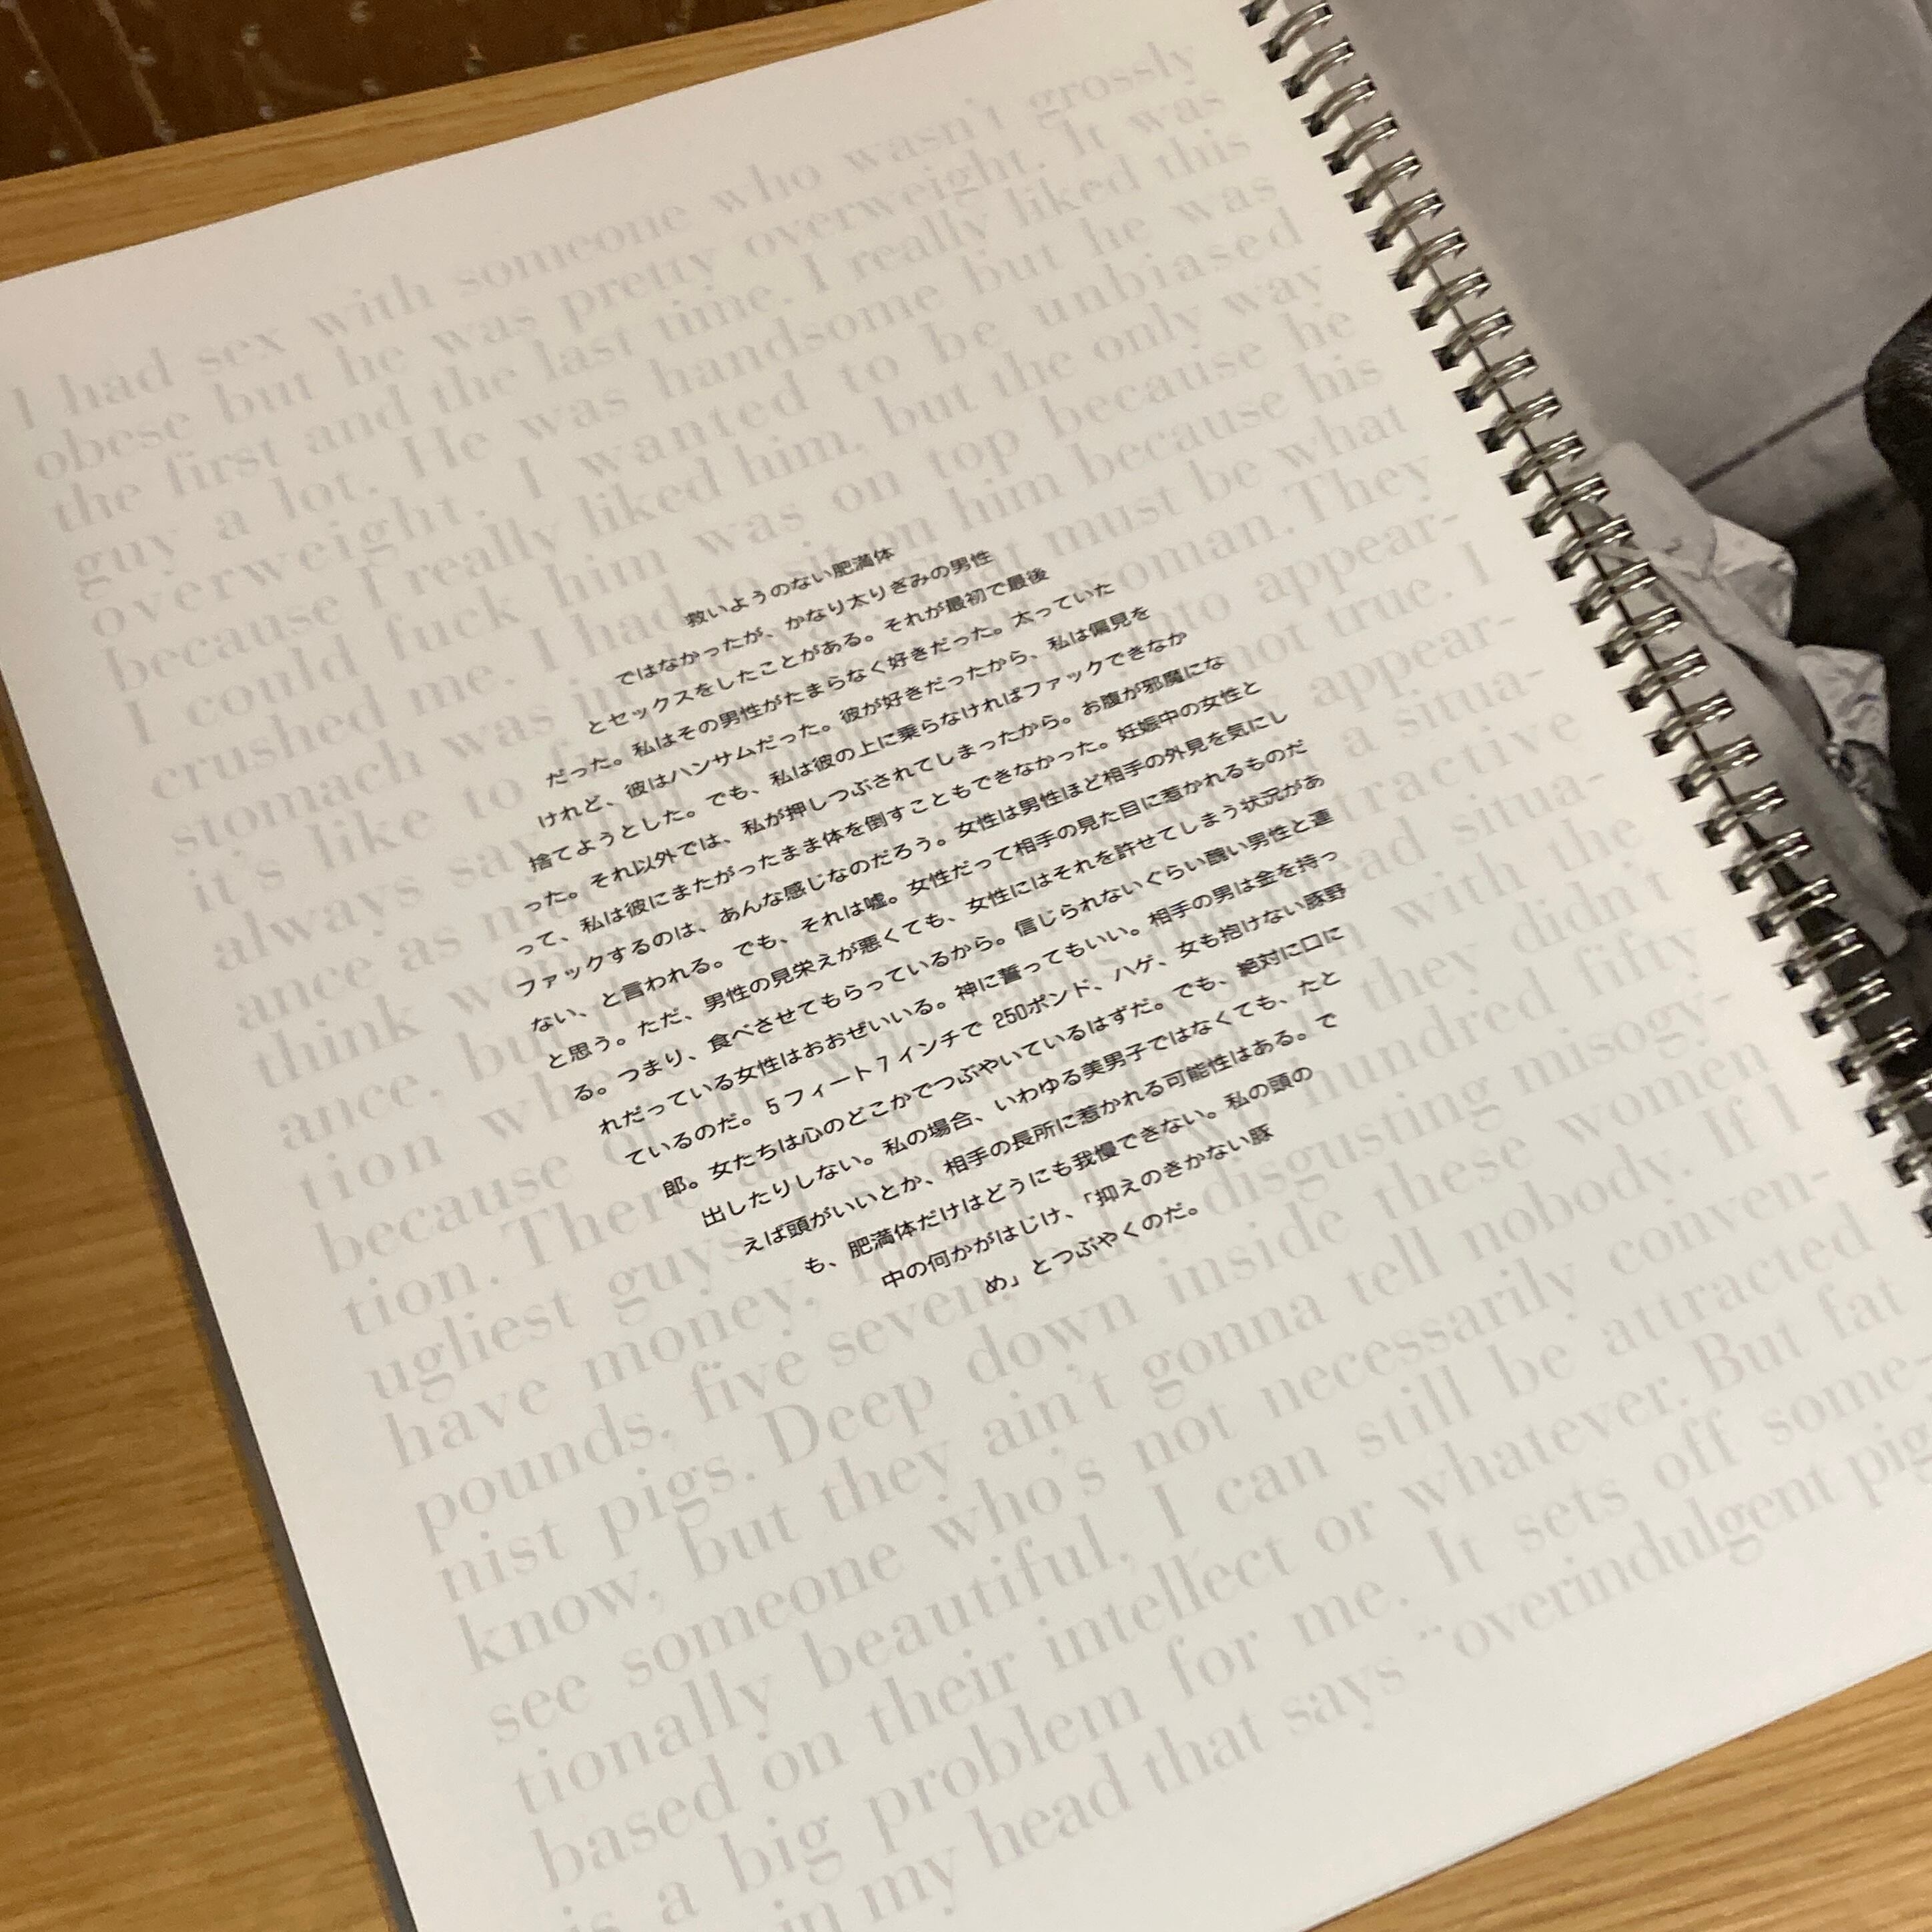 I had sex with someone who wasn't grossly
obese but he was pretty overweight. It was
the first and the last time. I really liked this
guy a lot. He was handsome but he was
overweight. I wanted to be unbiased
because I really liked him, but the only way
I could fuck him was on top because he
crushed me. I had to sit on him because his
stomach was in must be what
it's like to fu woman. They
always say w into appear-
ance as m not true. I
think wo appear-
ance, bu a situa-
tion whe ttractive
because bad situa-
tion. There with the
ugliest guys they didn't
have money, hundred fifty
pounds, five seven, bald disgusting misogy-
nist pigs. Deep down inside these women
know, but they ain't gonna tell nobody. If I
see someone who's not necessarily conven-
tionally beautiful, I can still be attracted
based on their intellect or whatever. But fat
is a big problem for me. It sets off some-
in my head that says "overindulgent pig
救いようのない肥満体
ではなかったが、かなり太りぎみの男性
とセックスをしたことがある。それが最初で最後
だった。私はその男性がたまらなく好きだった。太っていた
けれど、彼はハンサムだった。彼が好きだったから、私は偏見を
捨てようとした。でも、私は彼の上に乗らなければファックできなか
った。それ以外では、私が押しつぶされてしまったから。お腹が邪魔にな
って、私は彼にまたがったまま体を倒すこともできなかった。妊娠中の女性と
ファックするのは、あんな感じなのだろう。女性は男性ほど相手の外見を気にし
ない、と言われる。でも、それは嘘。女性だって相手の見た目に惹かれるものだ
と思う。ただ、男性の見栄えが悪くても、女性にはそれを許せてしまう状況があ
る。つまり、食べさせてもらっているから。信じられないぐらい醜い男性と連
れだっている女性はおおぜいいる。神に誓ってもいい。相手の男は金を持っ
ているのだ。5フィート7インチで 250ポンド、ハゲ、女も抱けない豚野
郎。女たちは心のどこかでつぶやいているはずだ。でも、絶対に口に
出したりしない。私の場合、いわゆる美男子ではなくても、たと
えば頭がいいとか、相手の長所に惹かれる可能性はある。で
も、肥満体だけはどうにも我慢できない。私の頭の
中の何かがはじけ、「抑えのきかない豚
め」とつぶやくのだ。